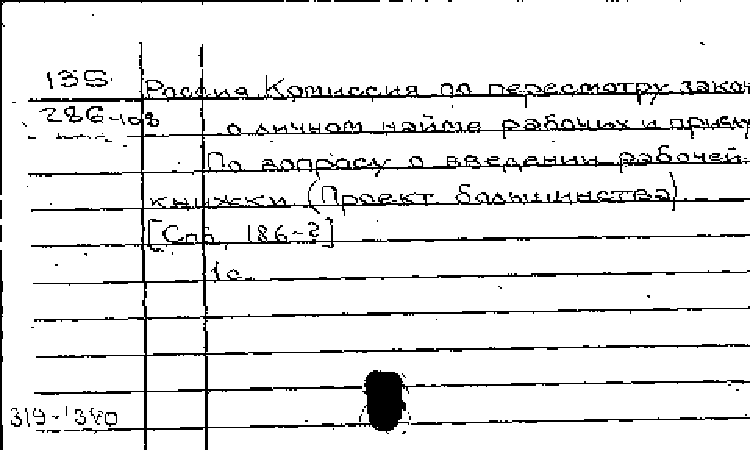 135
Россия. Комиссия по пересмотру закон
286-108
о личном найме рабочих и прислу
По вопросу о введении рабочей
книжки (Проект большинства)
[Спб, 186-?]
1с.
319-1340